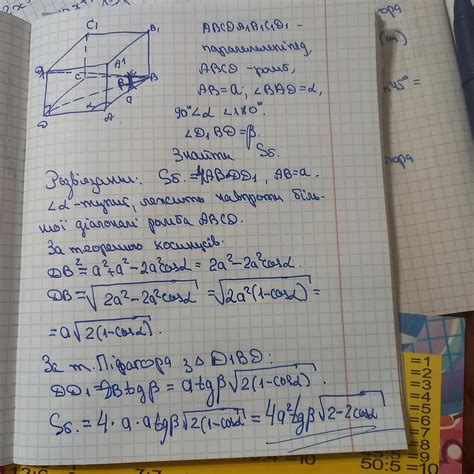 C₁ B₁
D₁ A₁
C B
β
D α A a
ABCDA₁B₁C₁D₁ -
паралелепіпед
ABCD - ромб,
AB = a, ∠BAD = α,
90° < α < 180°.
∠D₁BD = β.
Знайти Sб.
Розв'язання: Sб. = 4AB·DD₁, AB = a.
∠α - тупий, лежить навпроти біль-
шої діагоналі ромба ABCD.
За теоремою косинусів.
DB² = a² + a² - 2a²cosα = 2a² - 2a²cosα
DB = √(2a² - 2a²cosα) = √(2a²(1-cosα)) =
= a√(2(1-cosα)).
За т. Піфагора з Δ D₁BD:
DD₁ = DB tgβ = a tgβ √(2(1-cosα)).
Sб. = 4·a·a tgβ √(2(1-cosα)) = 4a² tgβ √(2-2cosα)
=1
=2
=3
=4
=5
=6
=7
=8
=9
=10
50:5=10